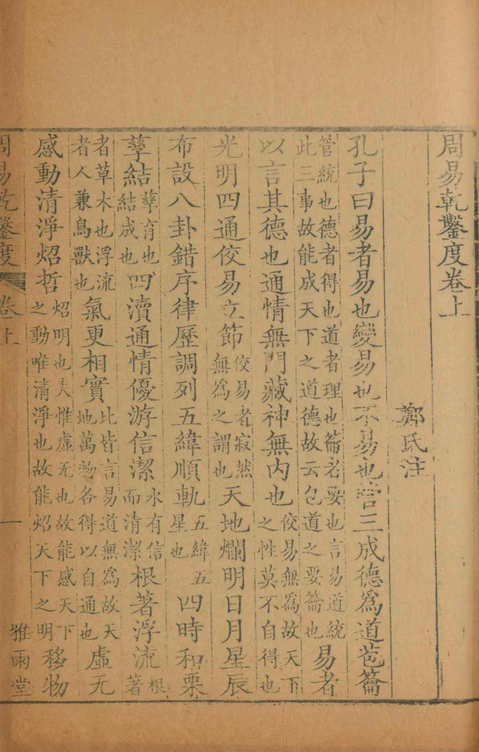 周易乾鑿度卷上
鄭氏注
孔子曰易者易也變易也不易也管三成德爲道苞籥
管統也德者得也道者理也籥者要也言易道統
此三事故能成天下之道德故云包道之要籥也
易者
以言其德也通情無門藏神無內也
佼易無爲故天下
之性莫不自得也
光明四通佼易立節
佼易者寂然
無爲之謂也
天地爛明日月星辰
布設八卦錯序律歷調列五緯順軌
五緯五
星也
四時和栗
孳結
孳育也
結成也
四瀆通情優游信潔
水有信
而清潔
根著浮流
根著
者草木也浮流
者人兼鳥獸也
氣更相實
此皆言易道無爲故天
地萬物各得以自通也
虛无
感動清淨炤哲
炤明也夫惟虛无也故能感天下
之動唯清淨也故能炤天下之明
移物
周易乾鑿度
卷上
一
雅雨堂